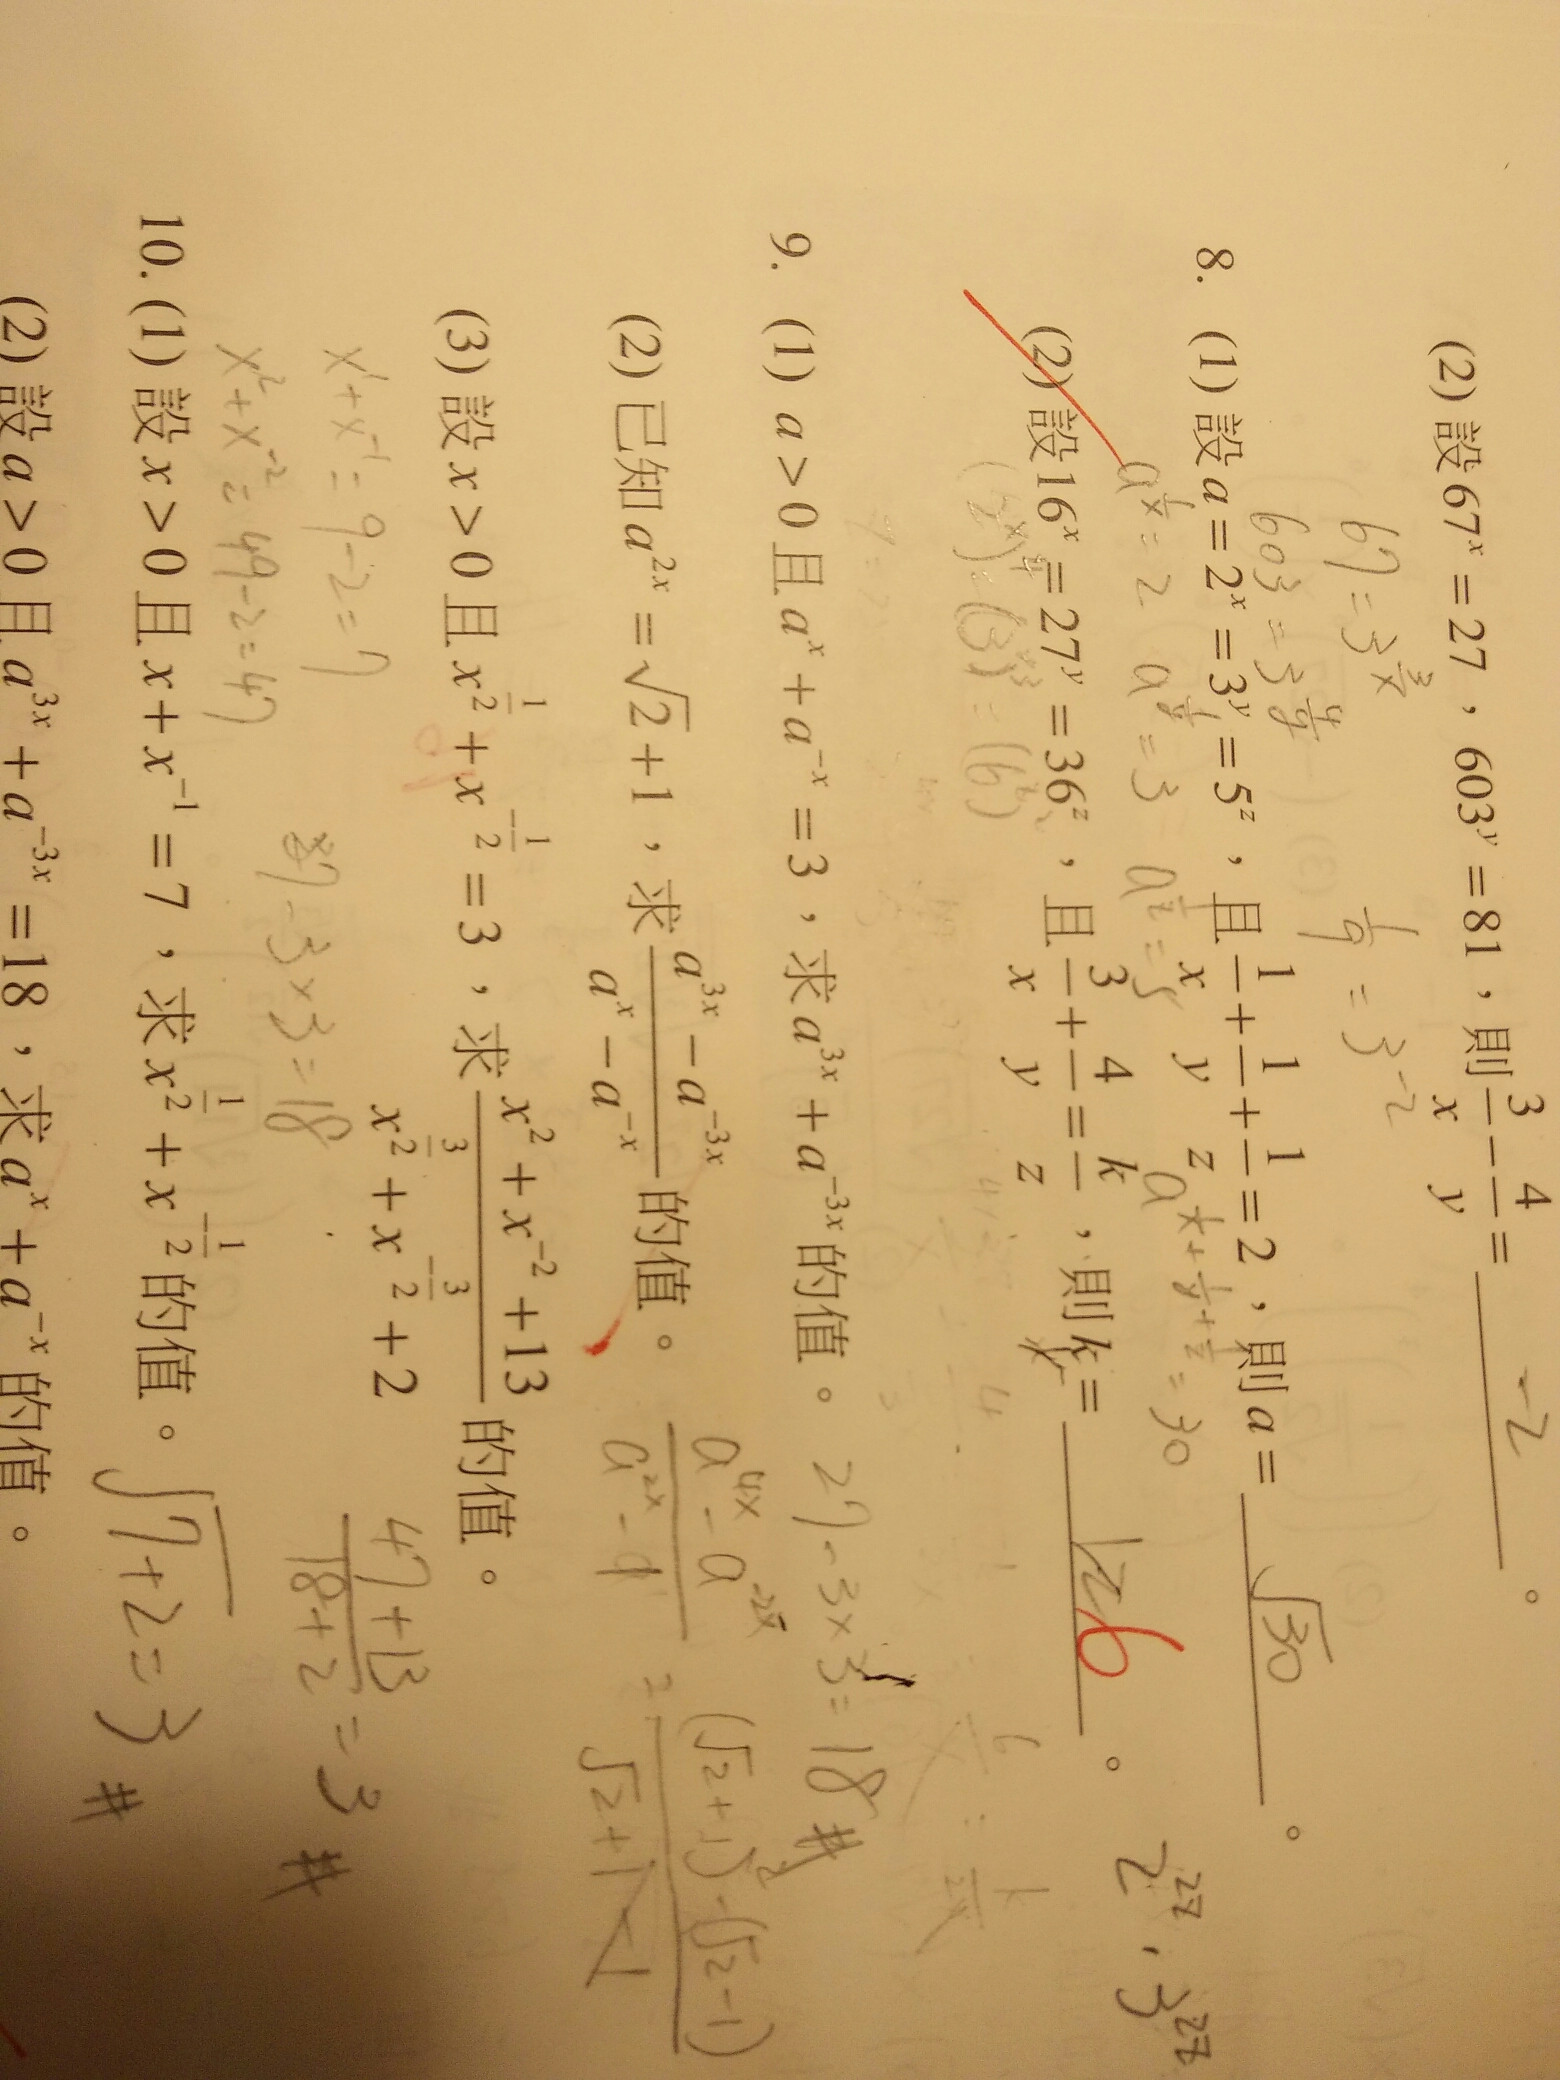 (2) 設 67^x = 27，603^y = 81，則 3/x − 4/y = -2 。
67 = 3^(3/x)
603 = 3^(4/y)
1/9 = 3^-2
8. (1) 設 a = 2^x = 3^y = 5^z，且 1/x + 1/y + 1/z = 2，則 a = √30 。
a^(1/x) = 2 a^(1/y) = 3 a^(1/z) = 5 a^(1/x + 1/y + 1/z) = 30
(2) 設 16^x = 27^y = 36^z，且 3/x + 4/y = k/z，則 k = 6 。
2^2z · 3^2z
9. (1) a > 0 且 a^x + a^-x = 3，求 a^3x + a^-3x 的值。 27 - 3×3 = 18 #
(2) 已知 a^2x = √2 + 1，求 (a^3x − a^-3x)/(a^x − a^-x) 的值。
(3) 設 x > 0 且 x^(1/2) + x^(-1/2) = 3，求 (x^2 + x^-2 + 13)/(x^(3/2) + x^(-3/2) + 2) 的值。
x^1 + x^-1 = 9 - 2 = 7
x^2 + x^-2 = 49 - 2 = 47
27 - 3×3 = 18
(47 + 13)/(18 + 2) = 3 #
10. (1) 設 x > 0 且 x + x^-1 = 7，求 x^(1/2) + x^(-1/2) 的值。 √(7+2) = 3 #
(2) 設 a > 0 且 a^3x + a^-3x = 18，求 a^x + a^-x 的值。